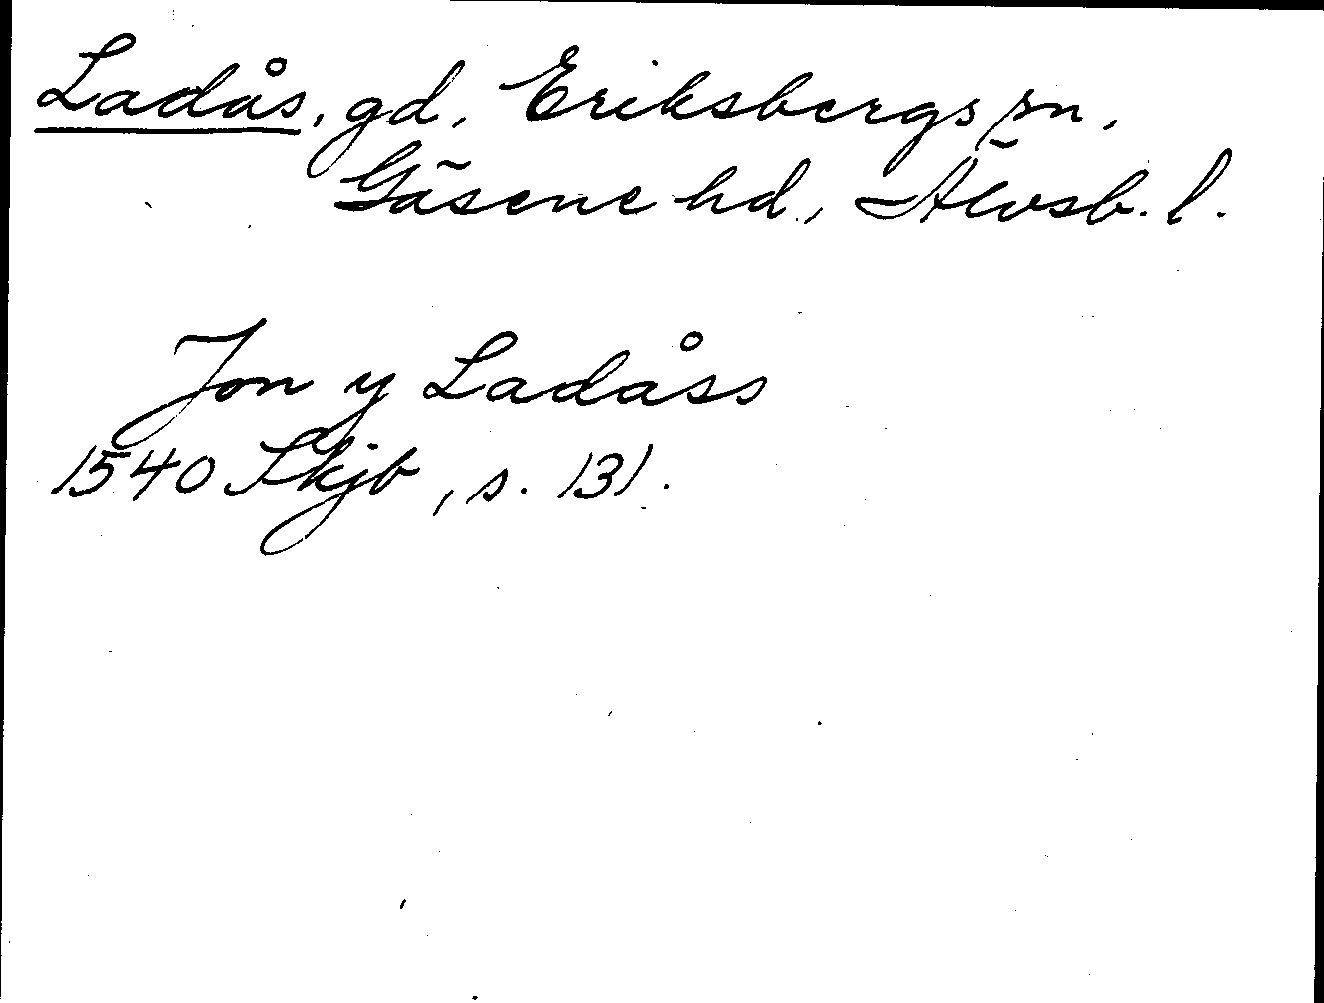 Ladås, gd, Eriksbergs sn,
Gäsene hd., Älvsb. l.
Jon y Ladåss
1540 Skjb, s. 131.